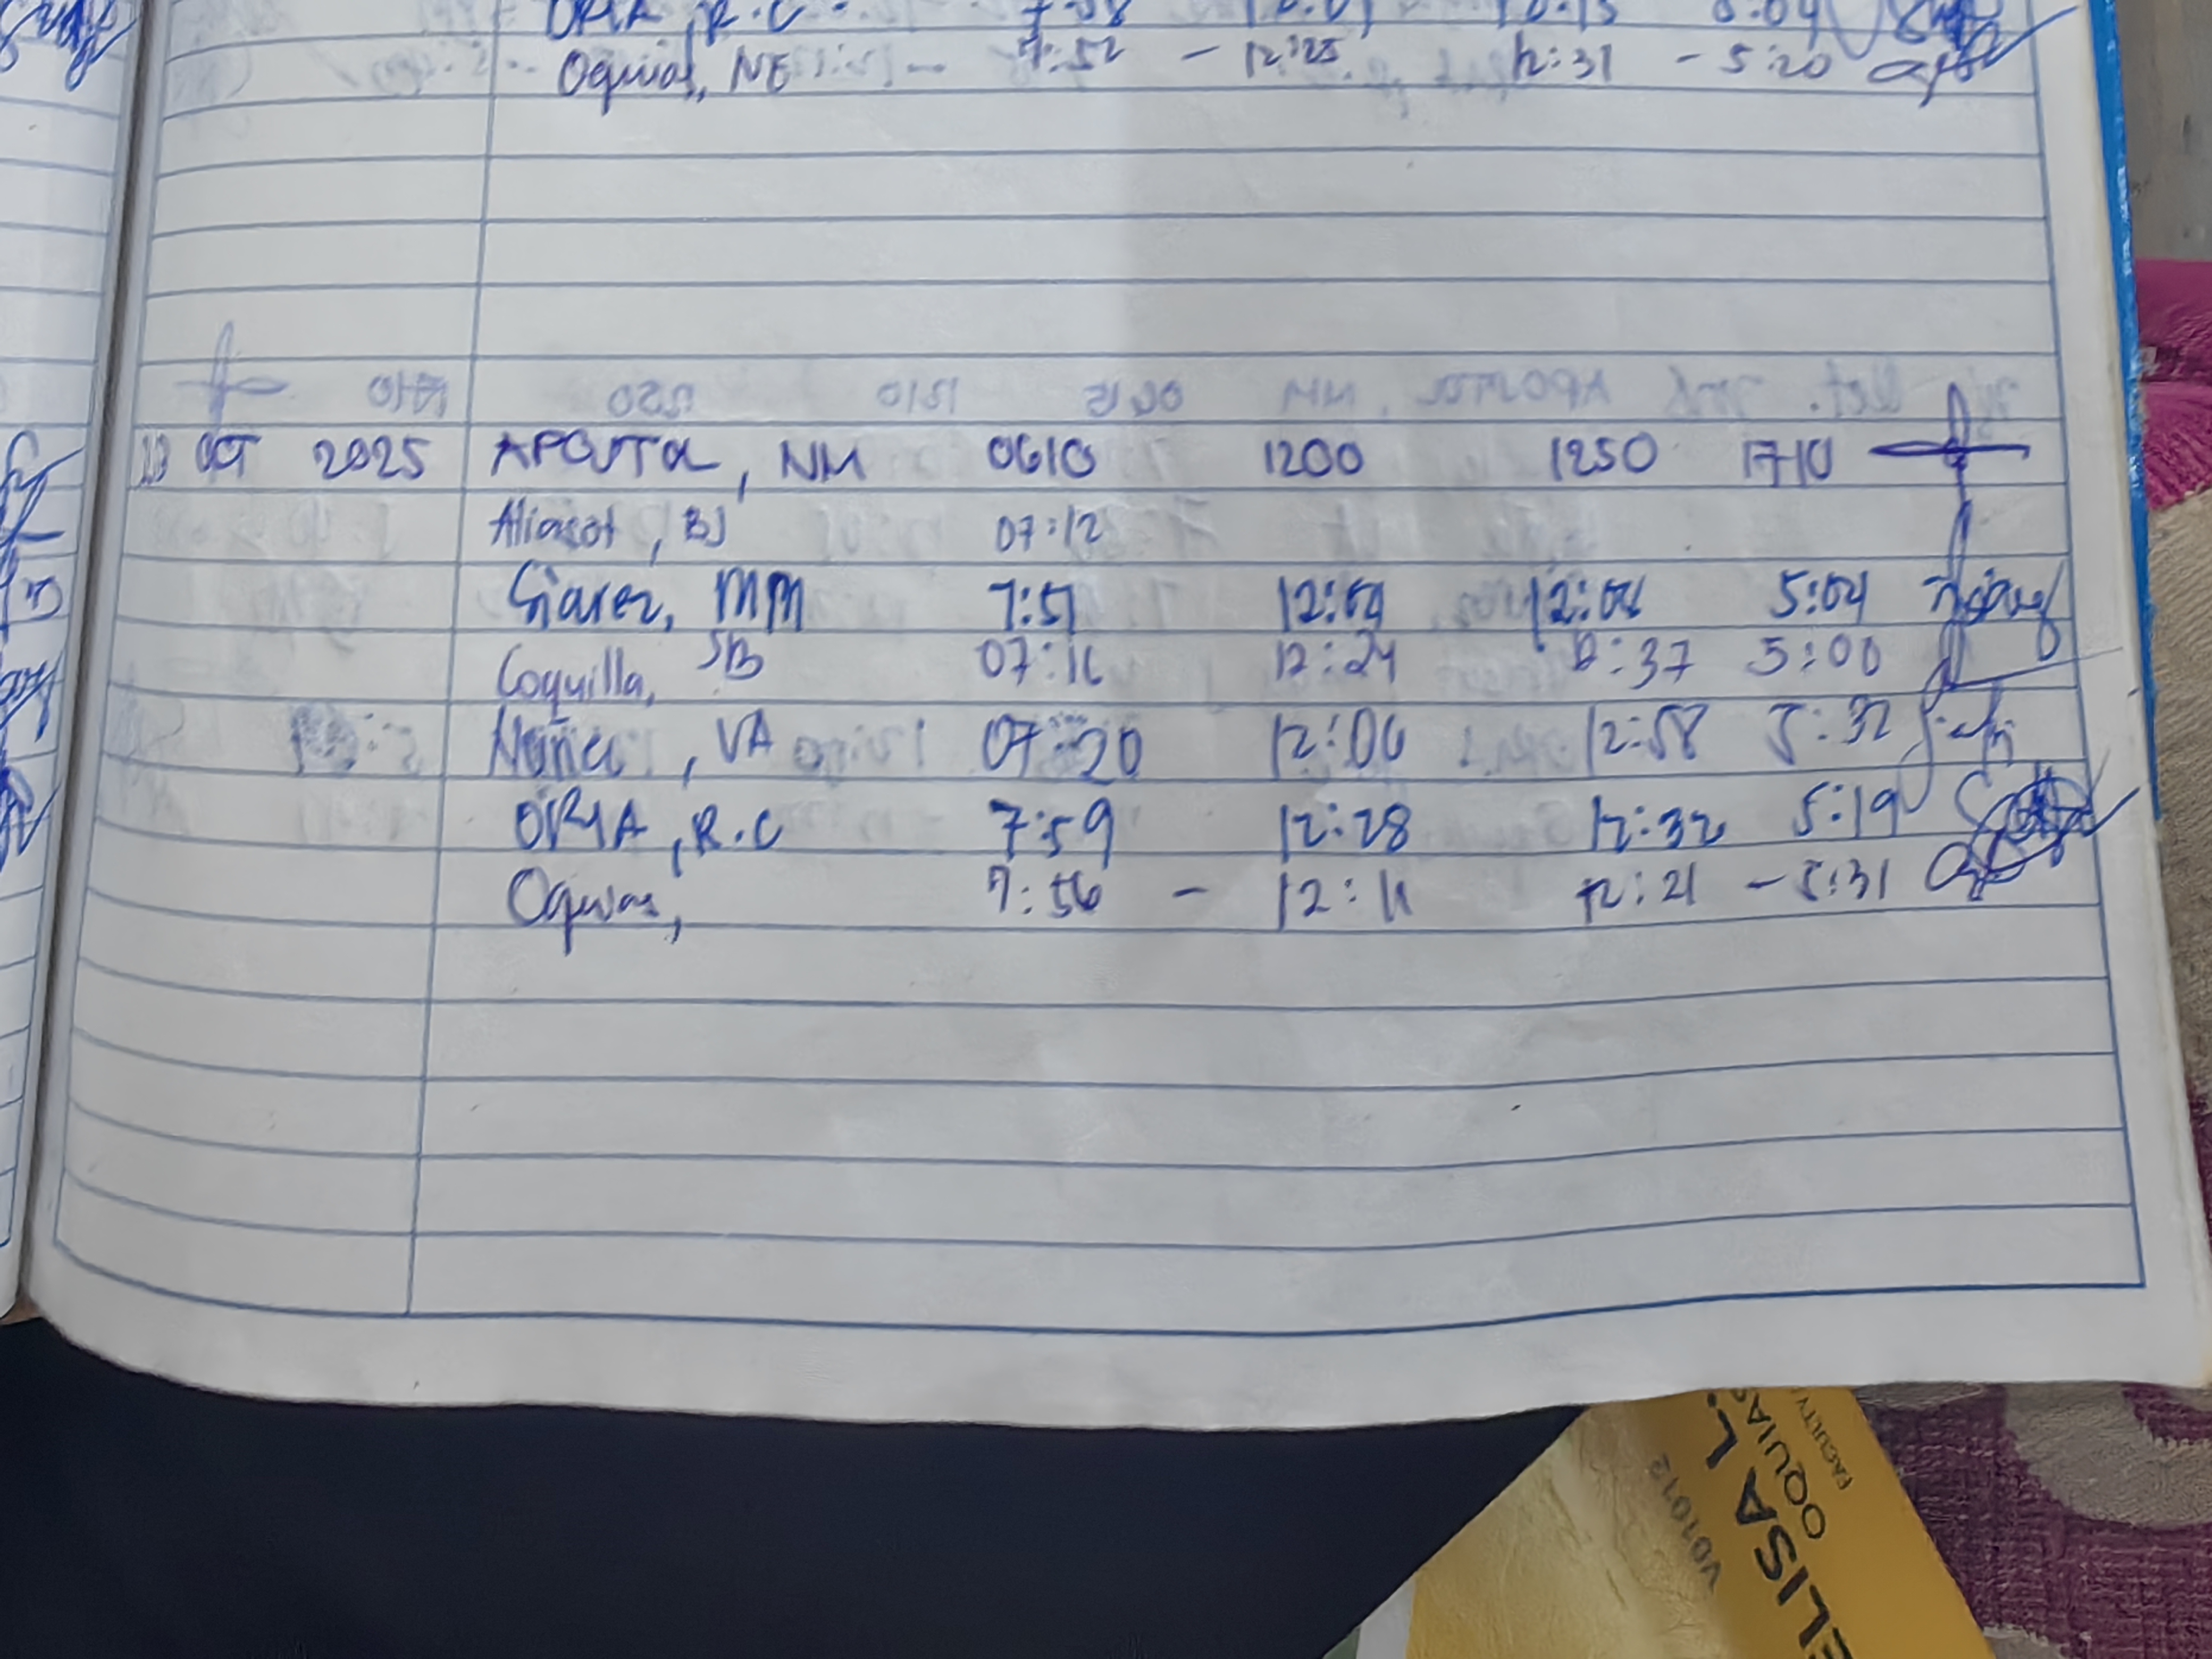 ORIA, R.C 7:58
Oquias, NE 7:52 - 12:25 12:31 - 5:20
OCT 2025 APOSTOL, NM 0610 1200 1250 1710
Aliasot, BJ 07:12
MM 7:51 12:04 5:04
Coquilla, SB 07:16 12:24 12:37 5:00
Nuñez, VA 07:20 12:06 12:58 5:32
ORIA, R.C 7:59 12:28 12:32 5:19
Oquias, 7:56 - 12:11 12:21 - 5:31
V01012
ELISA L.
OQUIAS
FACULTY